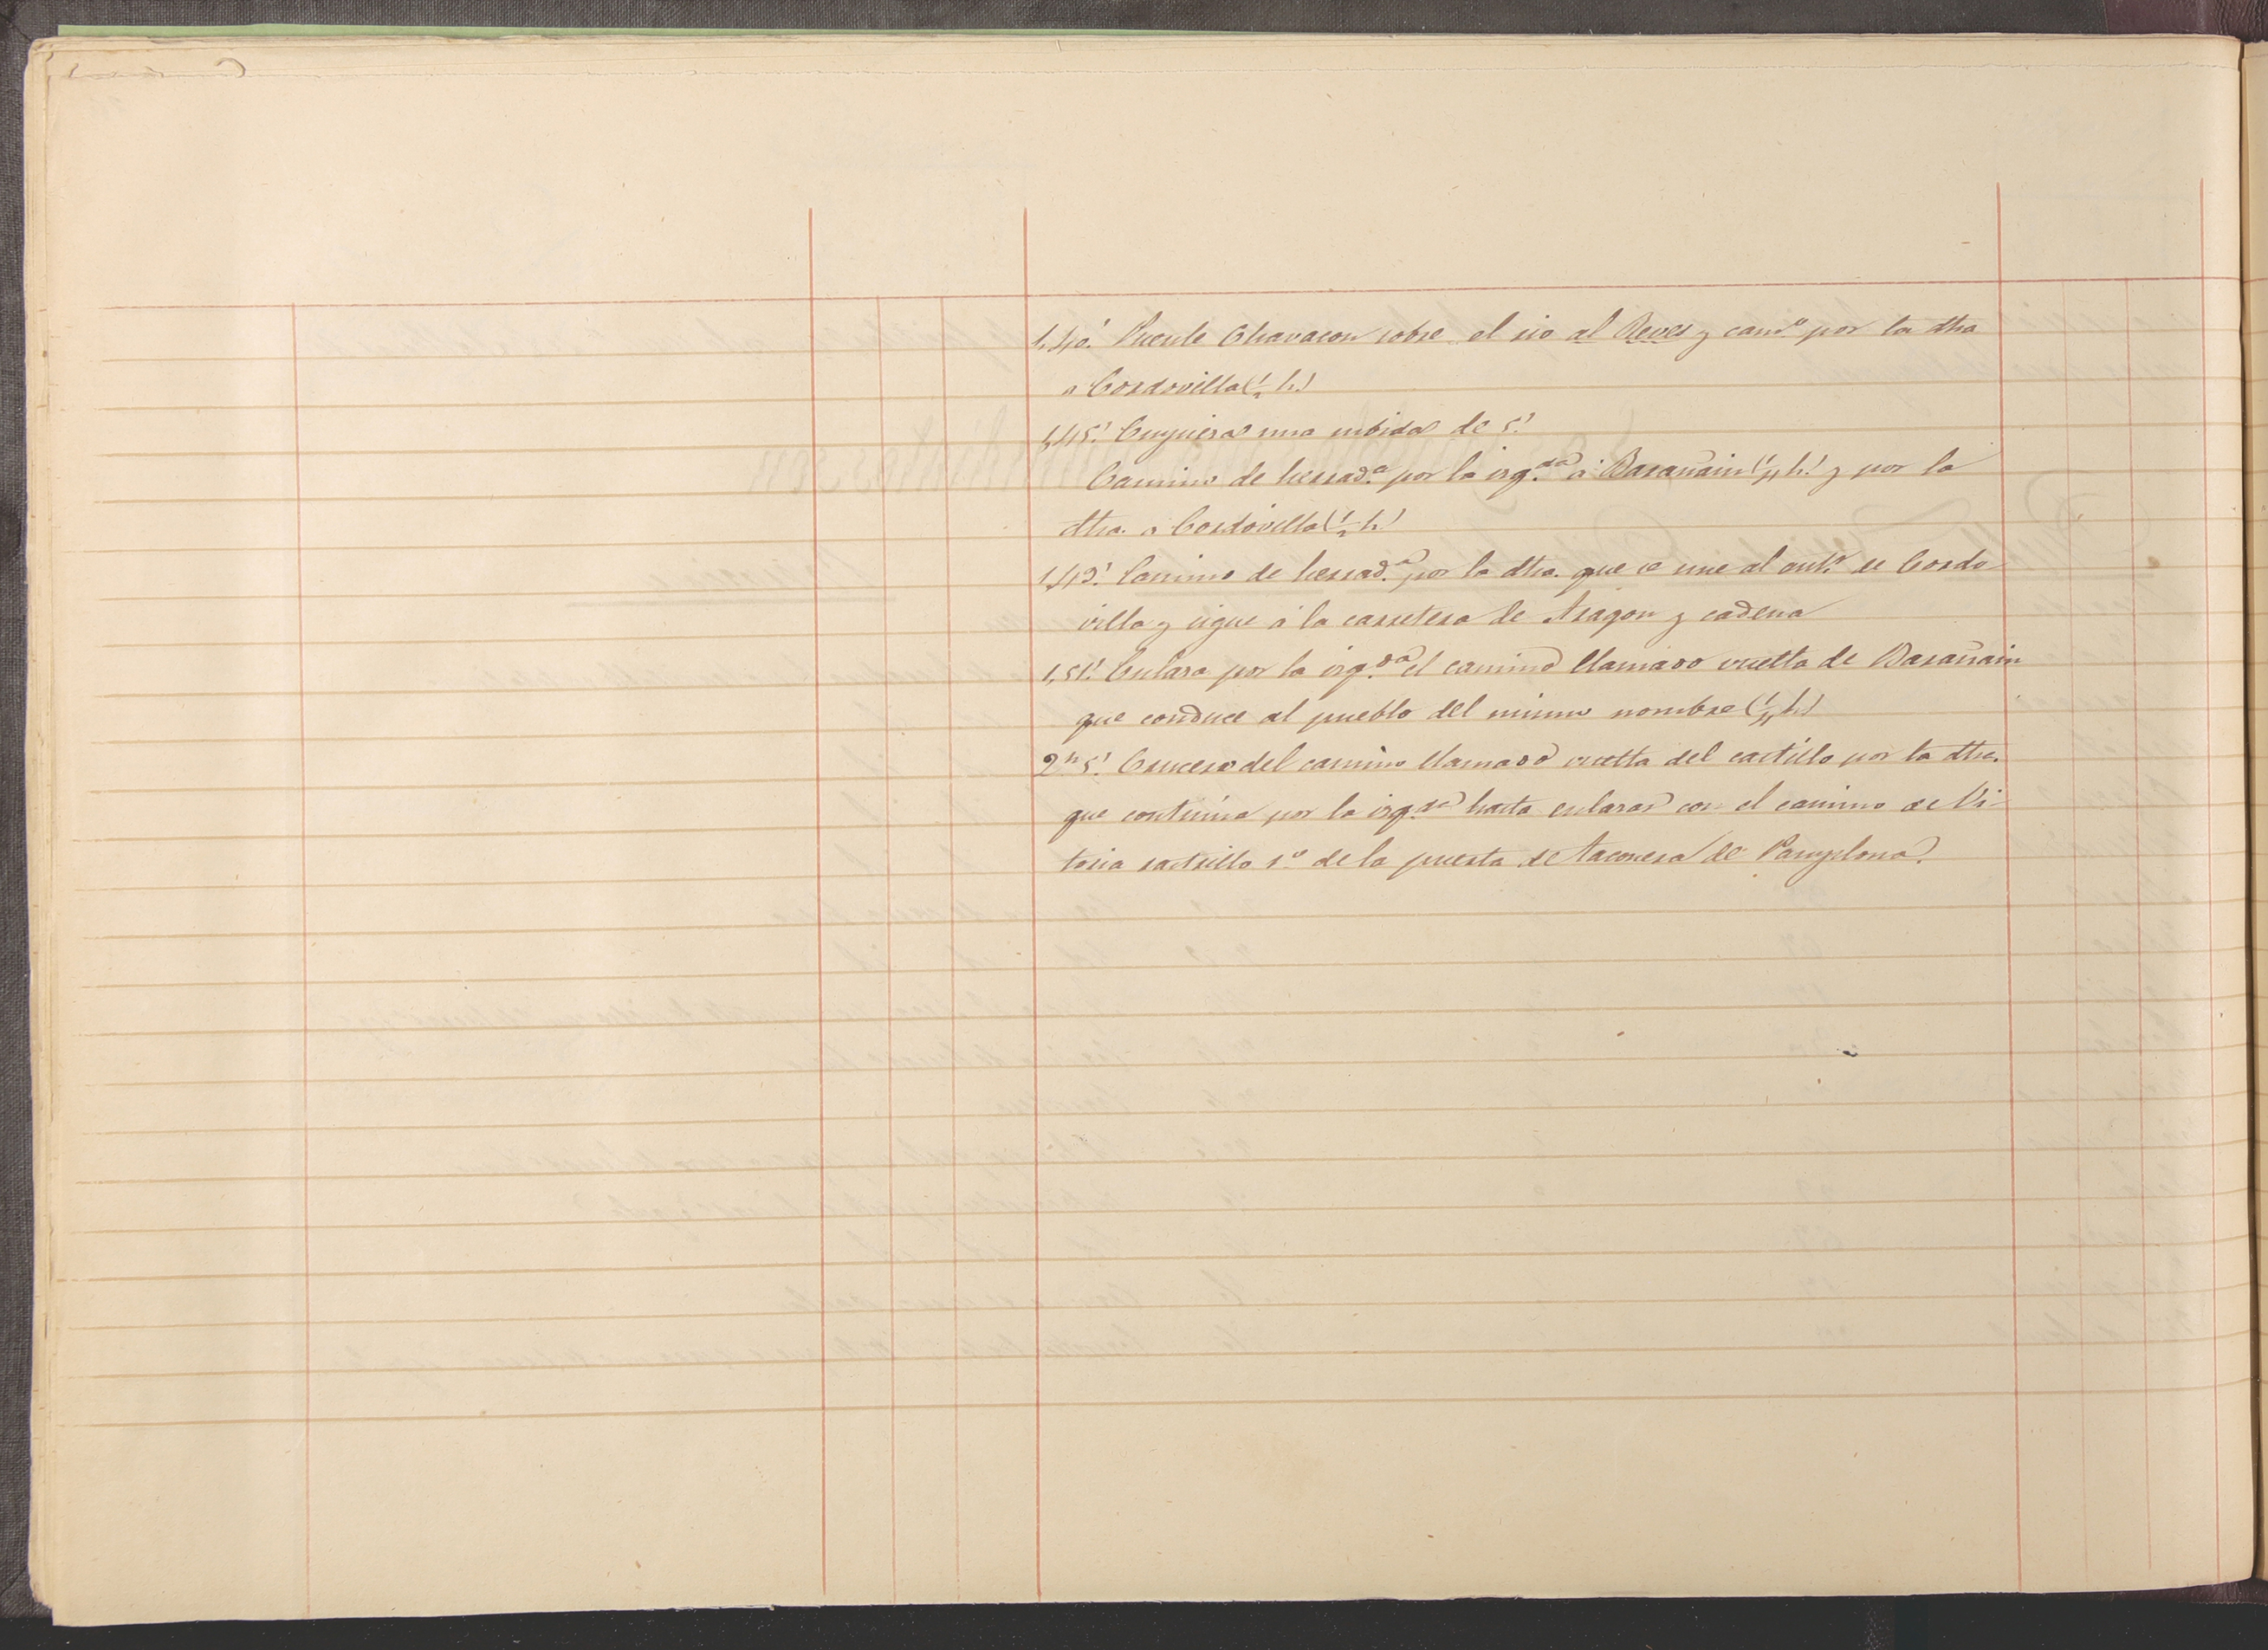 1,40' Puente Chavacon sobre el rio al Reves y cam.º por la dha
a Cordovilla (1/2 h.)
1,45' Empiera una subida de 5'
Camino de herrad.ª por la izq.da á Barañain (1/4 h.) y por la
dha. a Cordovilla (1/2 h.)
1,49' Camino de herrad.ª por la dha. que se une al ant.r de Cordo-
villa y sigue á la carretera de Aragon y cadena
1,51' Enlara por la izq.da el camino llamado vuelta de Barañain
que conduce al pueblo del mismo nombre (1/4 h.)
2h 5' Crucero del camino llamado vuelta del castillo por la dha.
que continúa por la izq.da hasta enlazar con el camino de Vi-
toria rastrillo 1.º de la puerta de Taconera de Pamplona.